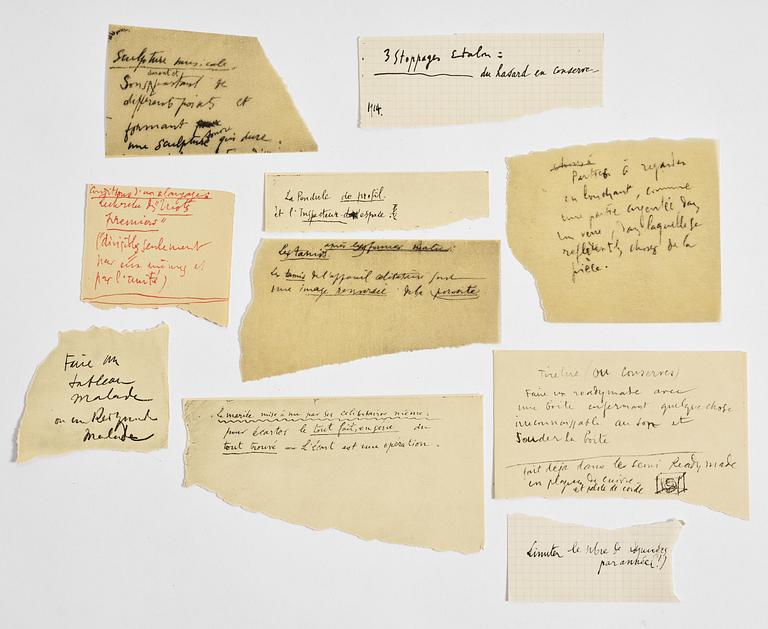 Sculpture musicale.
durant et
Sons partant de
différents points et
formant
une sculpture sonore qui dure.
3 Stoppages Etalon =
du hasard en conserve
1914.
Conditions d'un langage :
recherche des "mots
premiers"
("divisibles" seulement
par eux mêmes et
par l'unité)
La Pendule de profil.
et l'Inspecteur d'espace.
Partie à regarder
en louchant, comme
une partie argentée dans
un verre, dans laquelle se
reflètent les choses de la
pièce.
Les tamis
Les tamis de l'appareil célibataire sont
une image renversée de la porosité
Faire un
tableau
malade
ou un Readymade
malade
La mariée mise à nu par ses célibataires même.
pour écarter le tout fait, en série du
tout trouvé — L'écart est une opération.
Tirelire (ou conserves)
Faire un readymade avec
une boîte enfermant quelque chose
irreconnaissable au son et
souder la boîte
fait déjà dans le semi Readymade
en plaques de cuivre
et pelote de corde
Limiter le nbre de rdymades
par année (?)